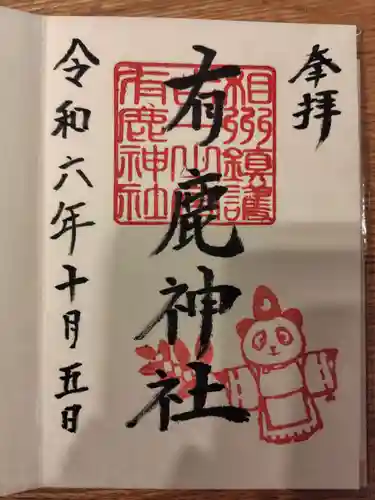 奉拝
有鹿神社
令和六年十月五日
相州鎮護
有鹿神社